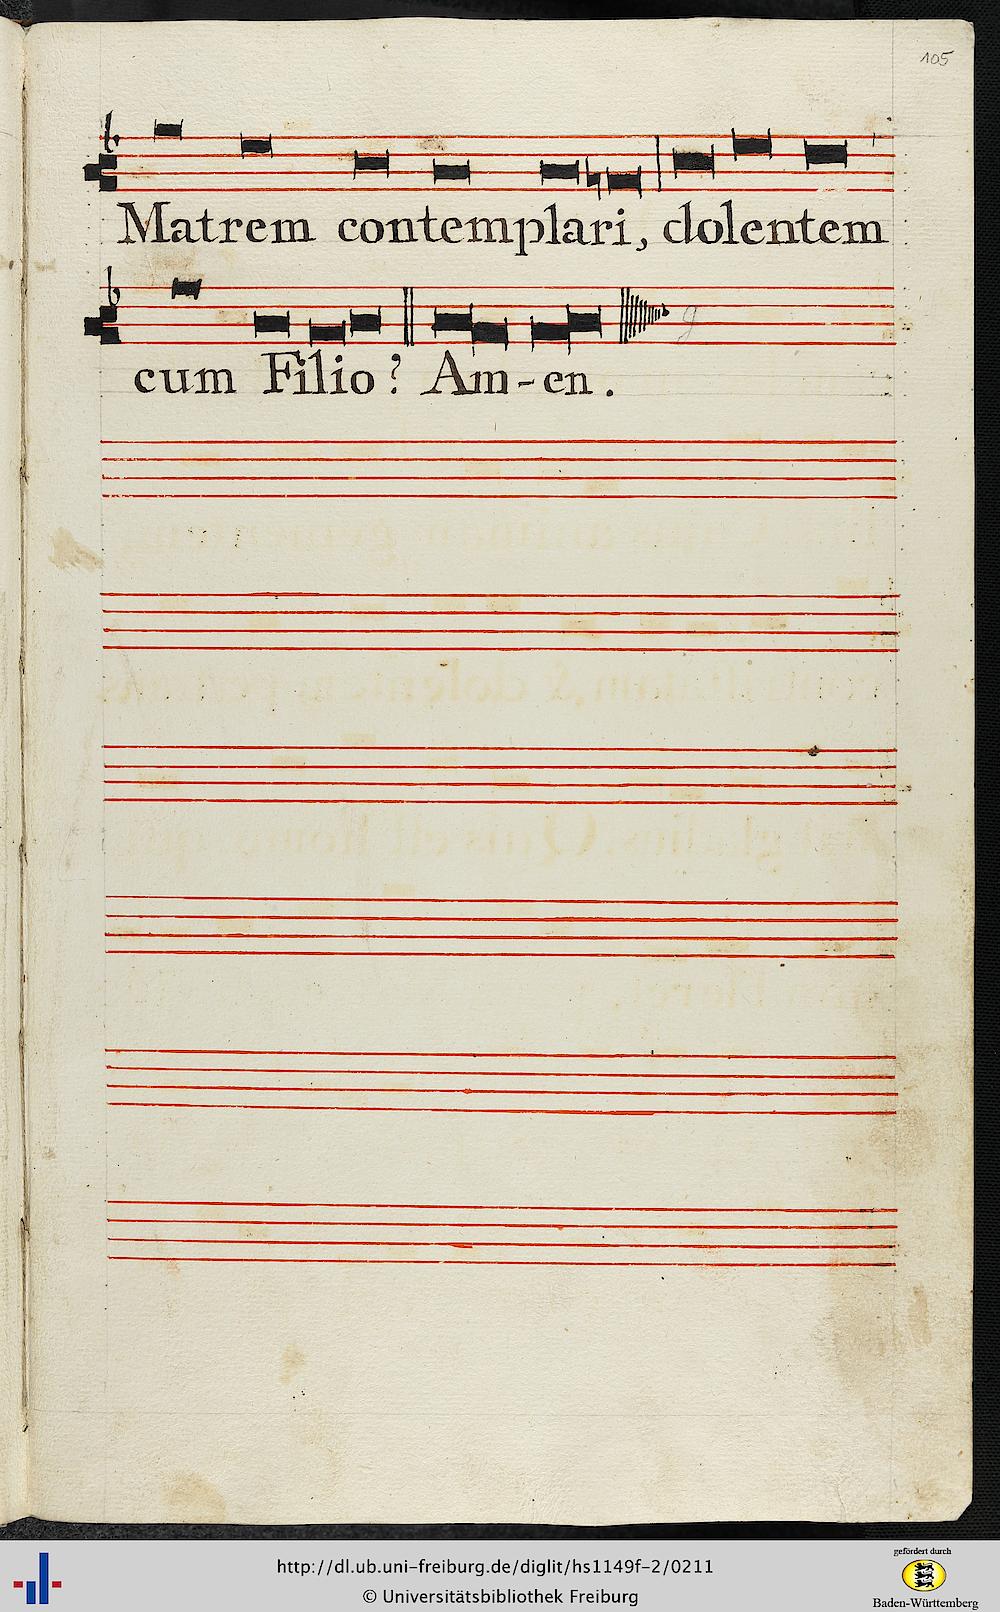 105
Matrem contemplari, dolentem
cum Filio? Am-en.
http://dl.ub.uni-freiburg.de/diglit/hs1149f-2/0211
© Universitätsbibliothek Freiburg
gefördert durch
Baden-Württemberg